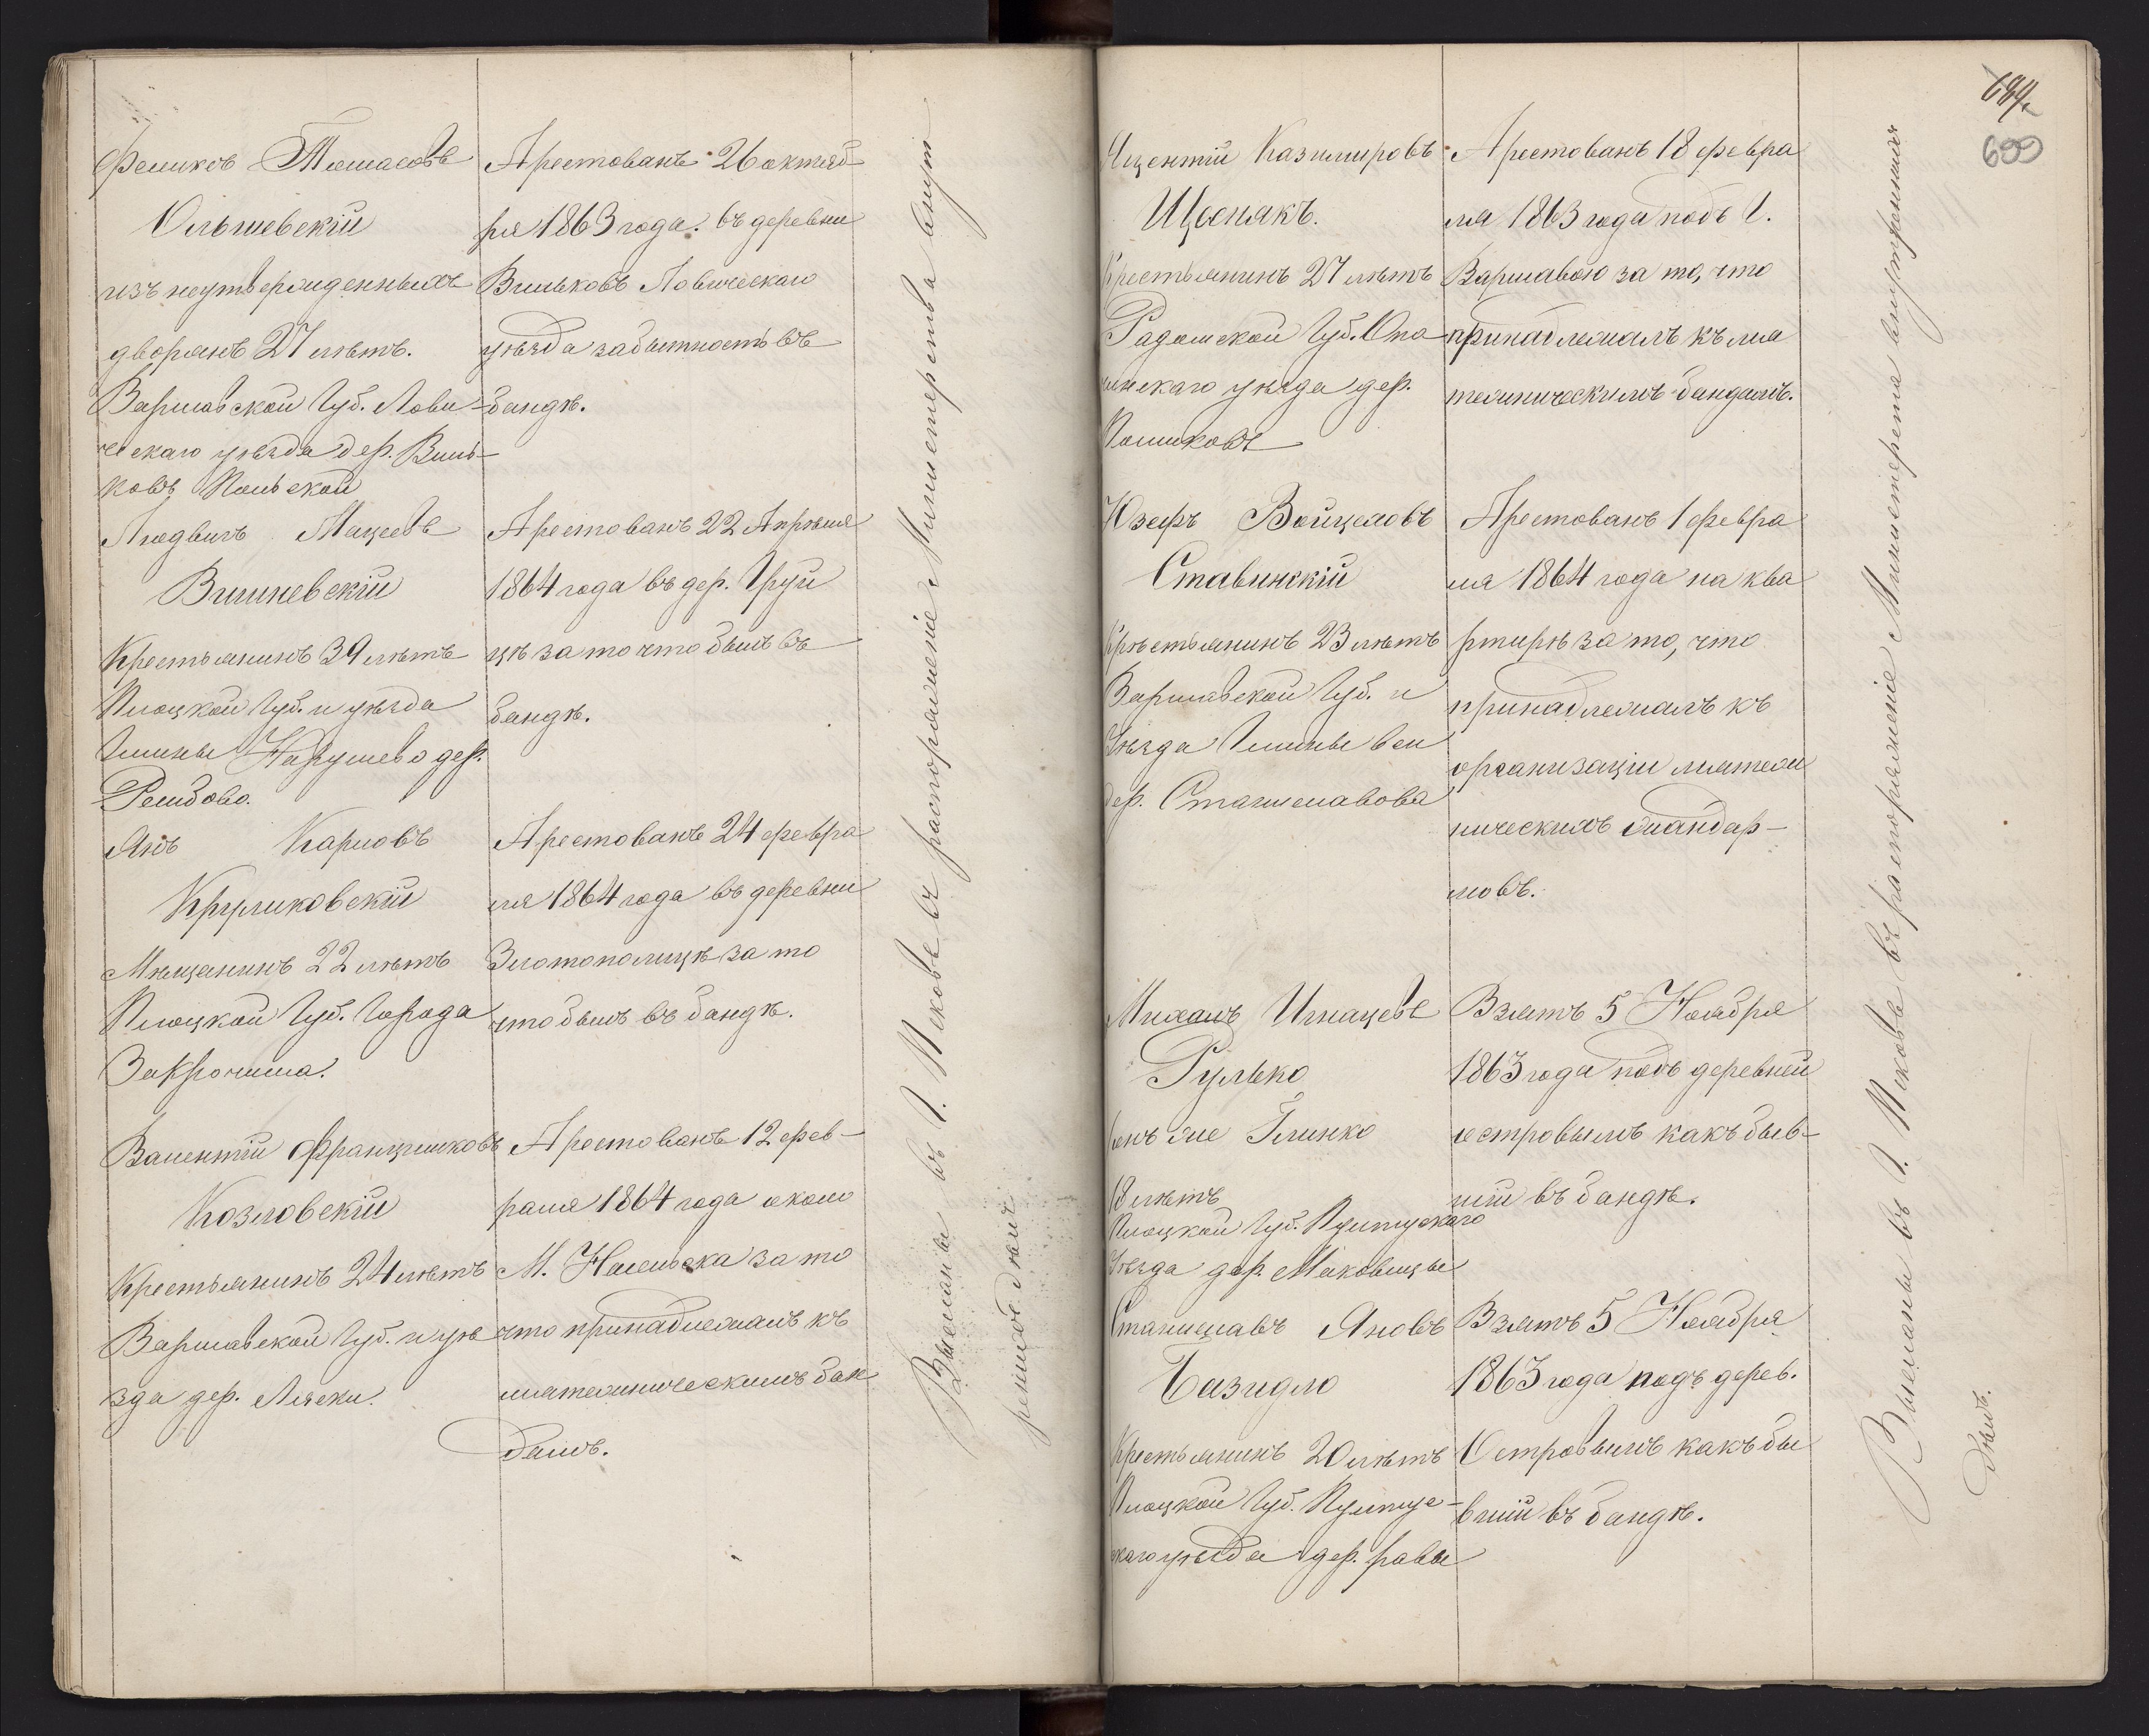 Феликсъ Томасовъ
Ольшевскій
изъ неутвержденныхъ
дворянъ 27 лѣтъ.
Варшавской Губ. Лови-
ческаго уѣзда дер. Виль-
ковъ Польской
Арестованъ 26 октяб
ря 1863 года. въ деревни
Вильковъ Ловическаго
уѣзда за бытность въ
бандѣ.
Людвигъ Мацеевъ
Вишневскій
Крестьянинъ 39 лѣтъ
Плоцкой Губ. и уѣзда
Гмины Нарушево дер.
Рембово.
Арестованъ 22 Апрѣля
1864 года въ дер. Груй
цѣ за то что былъ въ
бандѣ.
Янъ Карловъ
Круликовскій
Мѣщанинъ 22 лѣтъ
Плоцкой Губ. Города
Закрочима.
Арестованъ 24 февра
ля 1864 года въ деревни
Злотополицѣ за то
что былъ въ бандѣ.
Валентій Францишковъ
Козловскій
Крестьянинъ 24 лѣтъ
Варшавской Губ. и уѣ
зда дер. Ляски.
Арестованъ 12 фев-
раля 1864 года около
М. Насельска за то
что принадлежалъ къ
мятежническимъ бан
дамъ.
Высланы въ Г. Псковъ въ распоряженіе Министерства внут
реннихъ дѣлъ.
684
699
Казимировъ
Щепякъ.
Крестьянинъ 27 лѣтъ
Радомской Губ. Опо
чинскаго уѣзда дер.
Арестованъ 18 февра
ля 1863 года подъ Г.
Варшавою за то, что
принадлежалъ къ мя
тежническимъ бандамъ.
Юзефъ Войцеховъ
Ставинскій
Крѣстьянинъ 23 лѣтъ
Варшавской Губ. и
Уѣзда Гмины
дер. Станиславова
Арестованъ 1 февра
ля 1864 года на ква
ртирѣ за то, что
принадлежалъ къ
организаціи мятеж
ническихъ жандар-
мовъ.
Михалъ Игнацевъ
Рулько
онъ же Глинко
18 лѣтъ
Плоцкой Губ. Пултускаго
Уѣзда дер. Маковицы
Взятъ 5 Ноября
1863 года подъ деревней
островымъ какъ быв-
шій въ бандѣ.
Станиславъ Яновъ
Базидло
Крестьянинъ 20 лѣтъ
Плоцкой Губ. Пултус-
каго уѣзда дер. равы
Взятъ 5 Ноября
1863 года подъ дерев.
Островымъ какъ бы
вшій въ бандѣ.
Высланы въ Г. Псковъ въ распоряженіе Министерства внутреннихъ
дѣлъ.